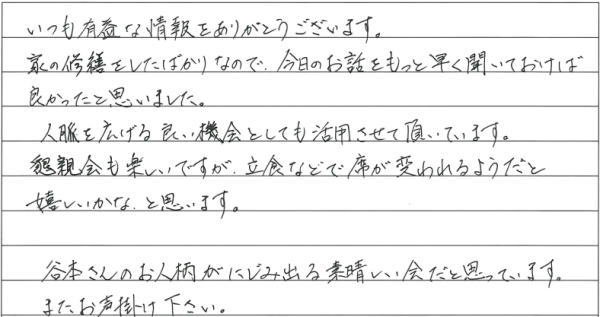 いつも有益な情報をありがとうございます。
家の修繕をしたばかりなので、今日のお話をもっと早く聞いておけば
良かったと思いました。
人脈を広げる良い機会としても活用させて頂いています。
懇親会も楽しいですが、立食などで席が変われるようだと
嬉しいかな、と思います。
谷本さんのお人柄がにじみ出る素晴しい会だと思っています。
またお声掛け下さい。